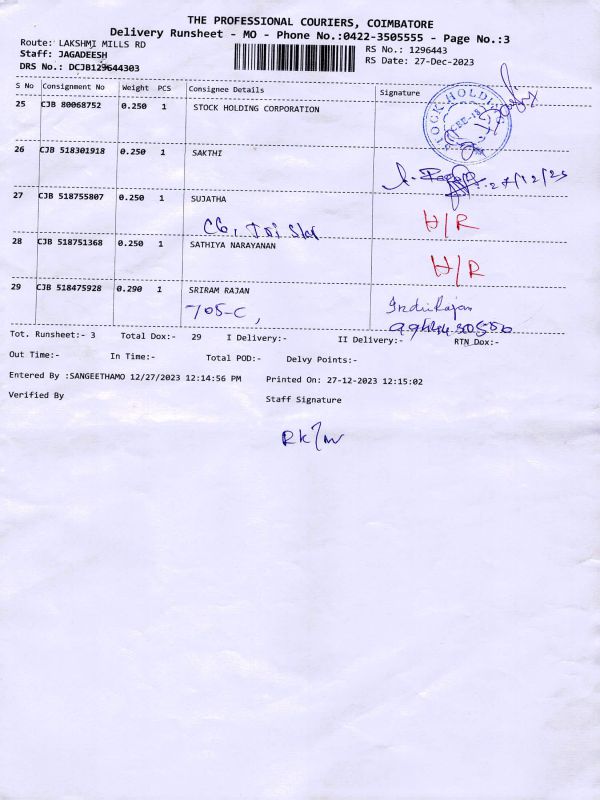 THE PROFESSIONAL COURIERS, COIMBATORE
Delivery Runsheet - MO - Phone No.:0422-3505555 - Page No.:3
Route: LAKSHMI MILLS RD
RS No.: 1296443
Staff: JAGADEESH
RS Date: 27-Dec-2023
DRS No.: DCJB129644303
S No Consignment No Weight PCS Consignee Details Signature
25 CJB 80068752 0.250 1 STOCK HOLDING CORPORATION
STOCK HOLDI
26 CJB 518301918 0.250 1 SAKTHI
27/12/23
27 CJB 518755807 0.250 1 SUJATHA H/R
C6, Tri Star
28 CJB 518751368 0.250 1 SATHIYA NARAYANAN
H/R
29 CJB 518475928 0.290 1 SRIRAM RAJAN
705-C, Indu Rajan
Tot. Runsheet:- 3 Total Dox:- 29 I Delivery:- II Delivery:- RTN_Dox:-
Out Time:- In Time:- Total POD:- Delvy Points:-
Entered By :SANGEETHAMO 12/27/2023 12:14:56 PM Printed On: 27-12-2023 12:15:02
Verified By Staff Signature